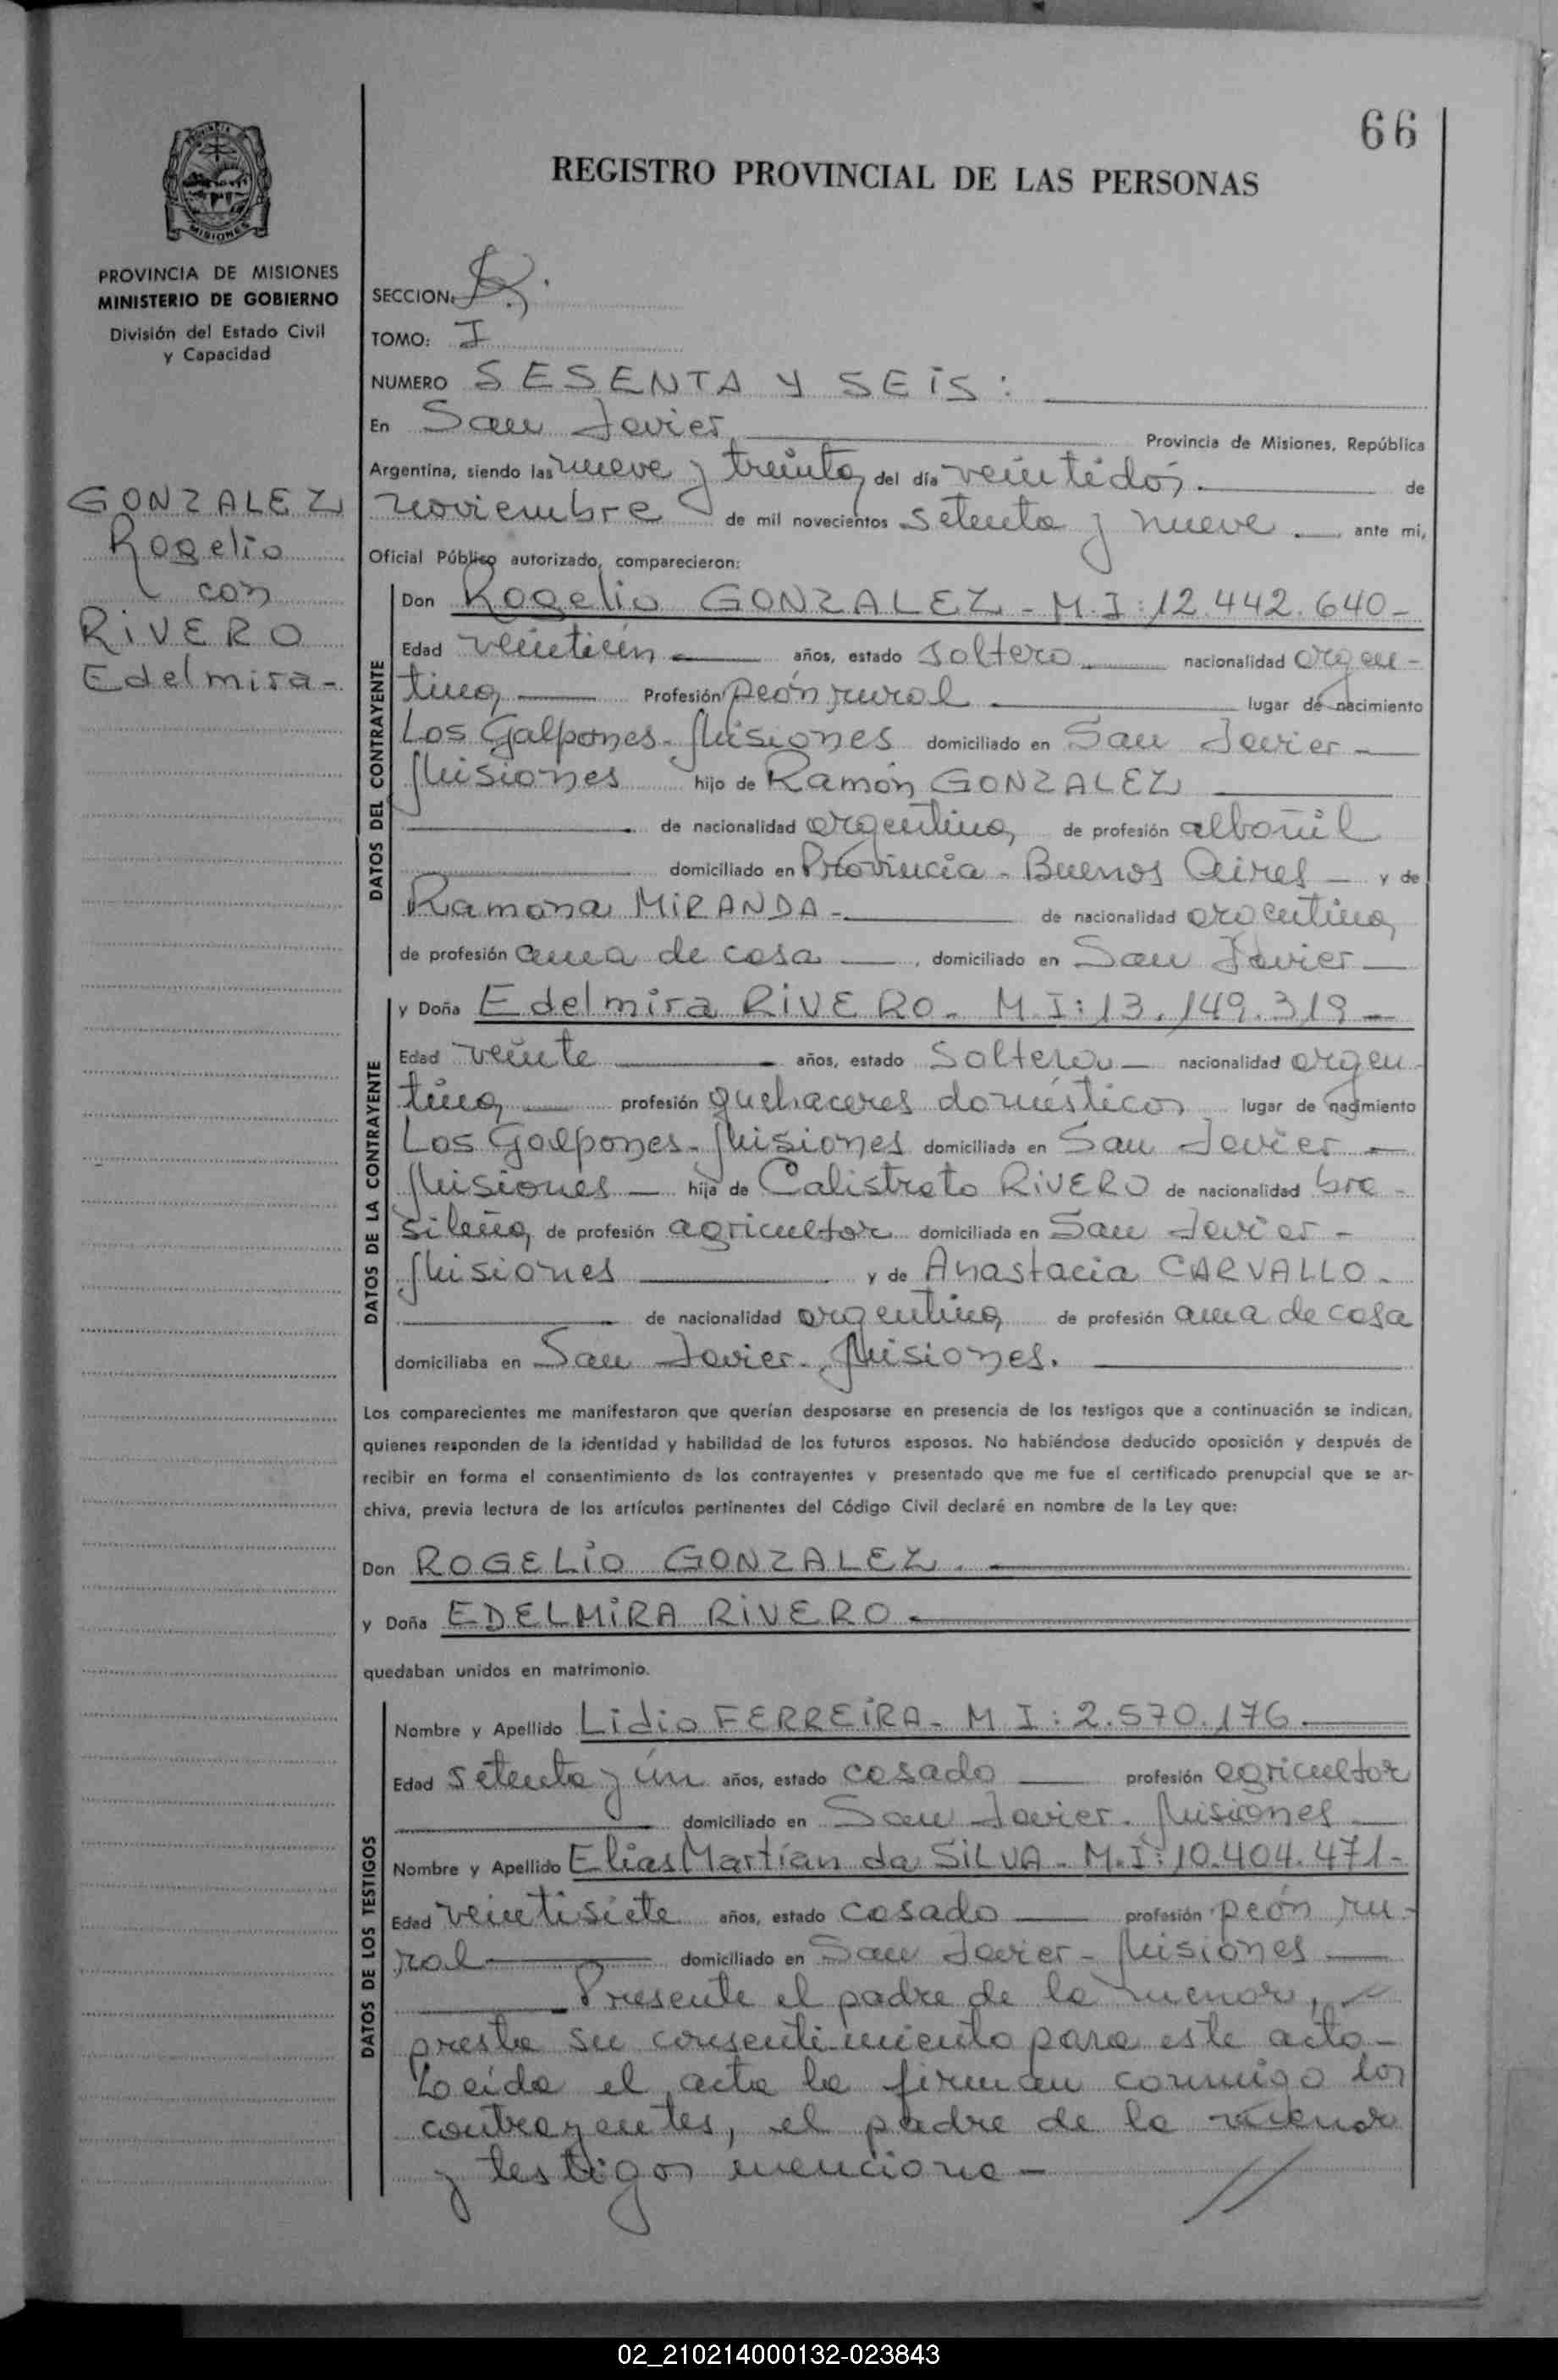 66
REGISTRO PROVINCIAL DE LAS PERSONAS
MISIONES
PROVINCIA DE MISIONES
MINISTERIO DE GOBIERNO
División del Estado Civil
y Capacidad
GONZALEZ
Rogelio
con
RIVERO
Edelmira-
SECCION:
TOMO: I
NUMERO SESENTA Y SEIS:
En San Javier Provincia de Misiones, República
Argentina, siendo las nueve y treinta, del día veintidós. de
noviembre de mil novecientos setenta y nueve ante mi,
Oficial Público autorizado, comparecieron:
DATOS DEL CONTRAYENTE
Don Rogelio GONZALEZ - M.I: 12.442.640-
Edad veintiún años, estado soltero nacionalidad argen-
tina, Profesión peón rural lugar de nacimiento
Los Galpones - Misiones domiciliado en San Javier -
Misiones hijo de Ramón GONZALEZ
de nacionalidad argentina, de profesión albañil
domiciliado en Provincia - Buenos Aires - y de
Ramona MIRANDA - de nacionalidad argentina,
de profesión ama de casa domiciliado en San Javier
DATOS DE LA CONTRAYENTE
y Doña Edelmira RIVERO - M.I: 13.149.319 -
Edad veinte años, estado soltera nacionalidad argen-
tina, profesión quehaceres domésticos lugar de nacimiento
Los Galpones - Misiones domiciliada en San Javier -
Misiones hija de Calistrato RIVERO de nacionalidad bra-
sileña, de profesión agricultor domiciliada en San Javier -
Misiones y de Anastacia CARVALLO -
de nacionalidad argentina, de profesión ama de casa
domiciliaba en San Javier - Misiones.
Los comparecientes me manifestaron que querían desposarse en presencia de los testigos que a continuación se indican,
quienes responden de la identidad y habilidad de los futuros esposos. No habiéndose deducido oposición y después de
recibir en forma el consentimiento de los contrayentes y presentado que me fue el certificado prenupcial que se ar-
chiva, previa lectura de los artículos pertinentes del Código Civil declaré en nombre de la Ley que:
Don ROGELIO GONZALEZ.
y Doña EDELMIRA RIVERO.
quedaban unidos en matrimonio.
DATOS DE LOS TESTIGOS
Nombre y Apellido Lidio FERREIRA - M I: 2.570.176
Edad setenta y ún años, estado casado profesión agricultor
domiciliado en San Javier - Misiones
Nombre y Apellido Elias Martían da SILVA - M.I: 10.404.471-
Edad veintisiete años, estado casado profesión peón ru-
ral domiciliado en San Javier - Misiones
Presente el padre de la menor,
presta su consentimiento para este acto -
Leída el acta la firman conmigo los
contrayentes, el padre de la menor
y testigos menciona -
02_210214000132-023843